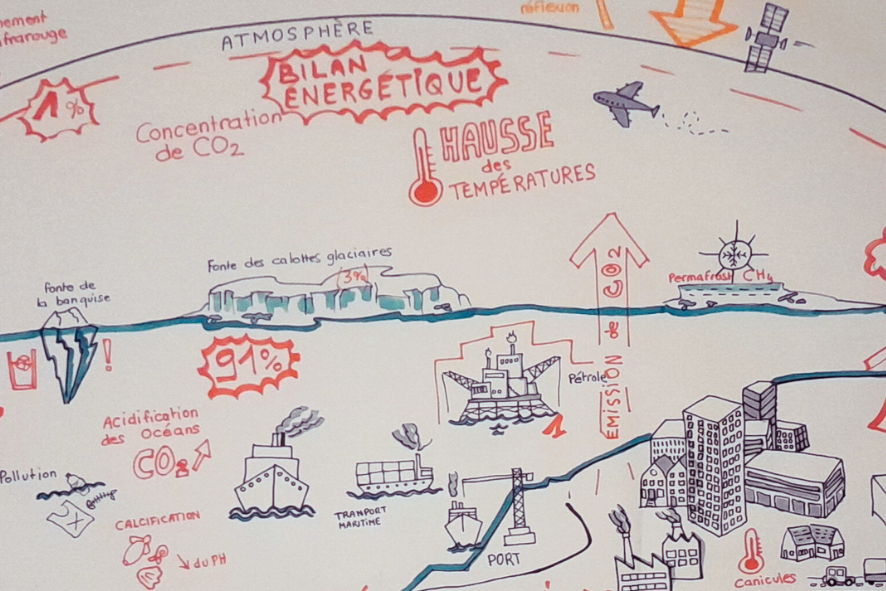 réflexion
ATMOSPHÈRE
BILAN
ÉNERGÉTIQUE
1%
Concentration
de CO2
HAUSSE
des
TEMPÉRATURES
Fonte des calottes glaciaires
3%
Fonte de
la banquise
!
Permafrost CH4
ÉMISSION de CO2
91%
Pétrole
1
Acidification
des Océans
CO2
Pollution
CALCIFICATION
du PH
TRANPORT
MARITIME
PORT
Canicules